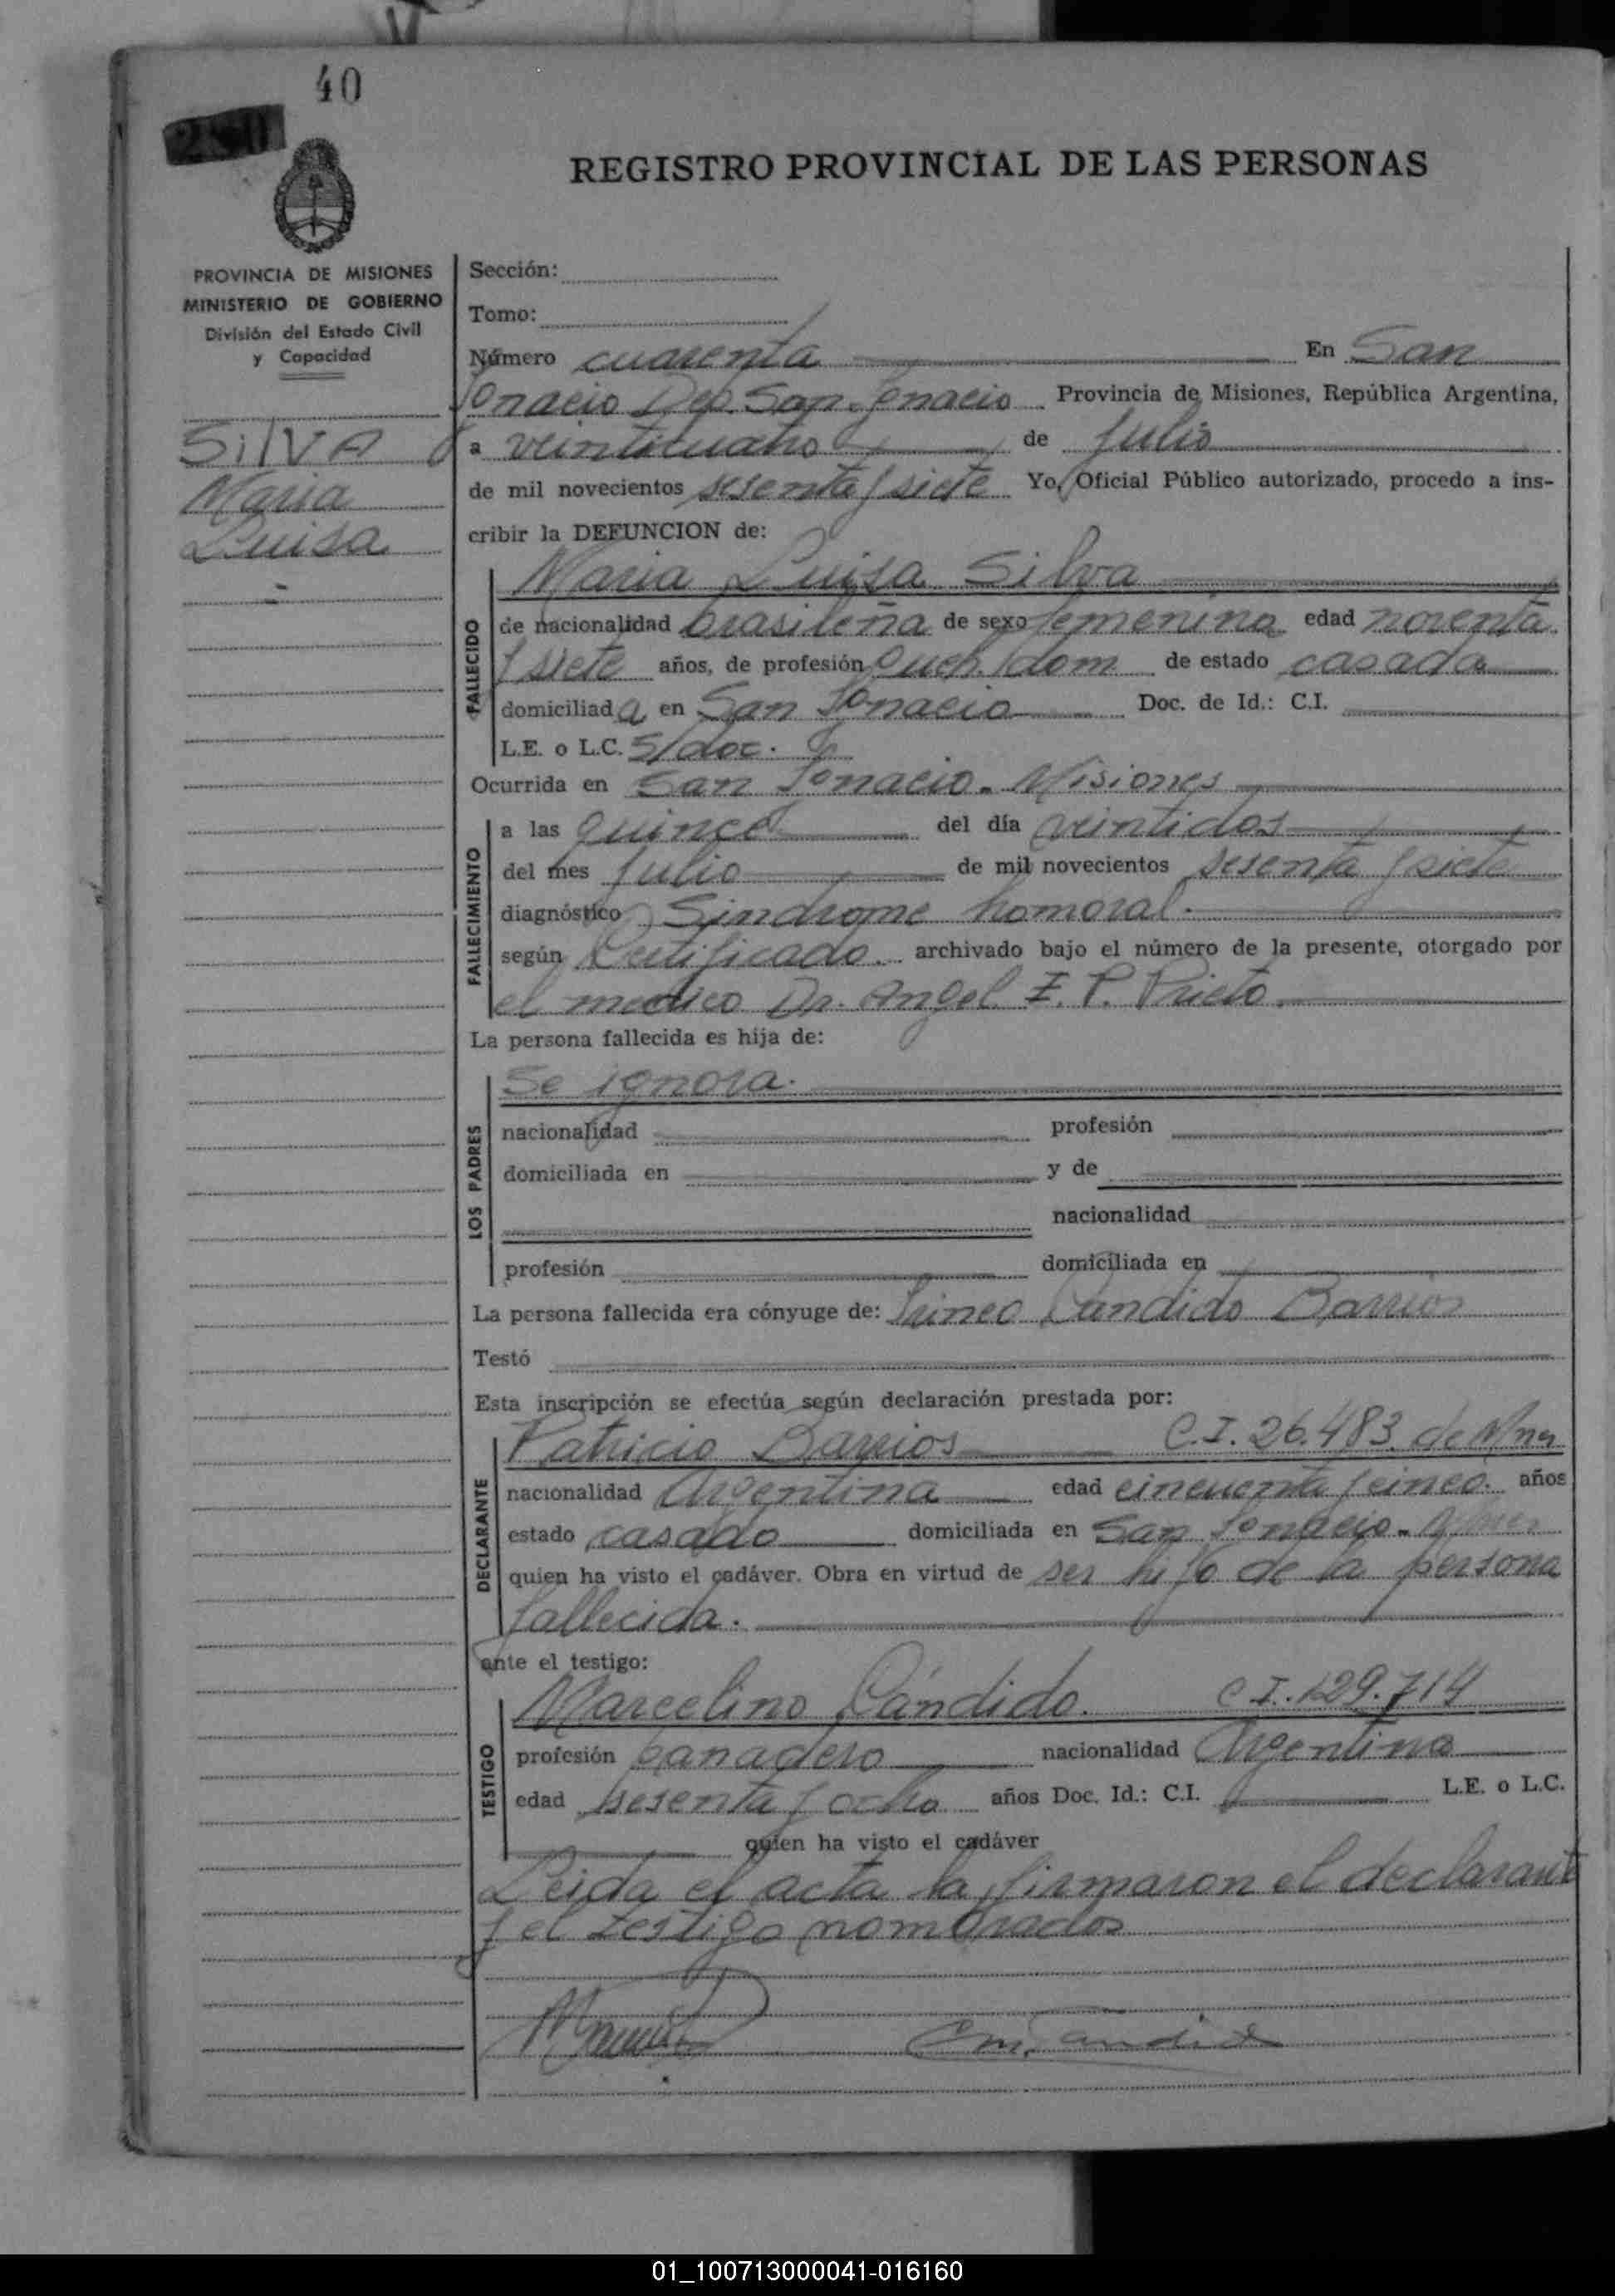 40
REGISTRO PROVINCIAL DE LAS PERSONAS
PROVINCIA DE MISIONES
MINISTERIO DE GOBIERNO
División del Estado Civil
y Capacidad
SilVA
Maria
Luisa
Sección:
Tomo:
Número cuarenta En San
Ignacio Dep. San Ignacio Provincia de Misiones, República Argentina,
a veinticuatro de julio
de mil novecientos sesenta y siete Yo, Oficial Público autorizado, procedo a ins-
cribir la DEFUNCION de:
FALLECIDO
Maria Luisa Silva
de nacionalidad brasileña de sexo femenino edad noventa
y siete años, de profesión Queh. dom. de estado casada
domiciliada en San Ignacio Doc. de Id.: C.I.
L.E. o L.C. S/doc.
Ocurrida en San Ignacio. Misiones
FALLECIMIENTO
a las quince del día veintidos
del mes julio de mil novecientos sesenta y siete
diagnóstico Sindrome homoral.
según Certificado. archivado bajo el número de la presente, otorgado por
el medico Dr. Angel E. P. Prieto.
La persona fallecida es hija de:
LOS PADRES
Se ignora.
nacionalidad profesión
domiciliada en y de
nacionalidad
profesión domiciliada en
La persona fallecida era cónyuge de: Irineo Candido Barrios
Testó
Esta inscripción se efectúa según declaración prestada por:
DECLARANTE
Patricio Barrios C.I. 26.483. de Mnes
nacionalidad Argentina edad cincuenta y cinco. años
estado casado domiciliada en San Ignacio. Mnes
quien ha visto el cadáver. Obra en virtud de ser hijo de la persona
fallecida.
ante el testigo:
TESTIGO
Marcelino Cándido. C.I. 129.714
profesión panadero nacionalidad Argentina
edad sesenta y ocho años Doc. Id.: C.I. L.E. o L.C.
quien ha visto el cadáver
Leida el acta la firmaron el declarante
y el testigo nombrados
01_100713000041-016160